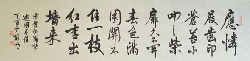 應憐
屐齒印
蒼苔小
叩柴
扉久不
開春色滿
園關不
住一枝
紅杏出
牆來